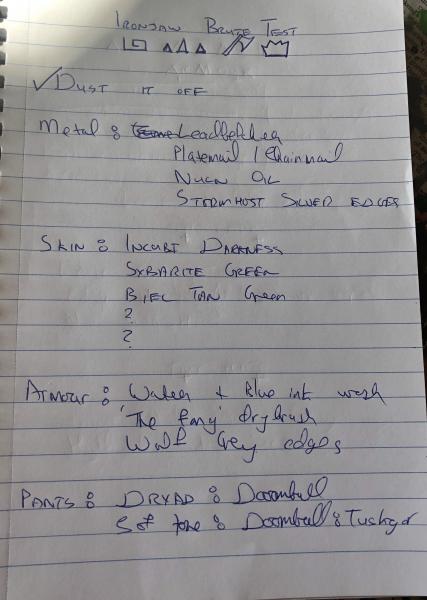 IRONJAW BRUTE TEST
✓DUST IT OFF
Metal : Leadbelcher
Platemail / Chainmail
NULN OIL
STORMHOST SILVER EDGES
SKIN : INCUBI DARKNESS
SYBARITE GREEN
BIEL TAN Green
?
?
Armour : Water + Blue ink wash
'The fang' drybrush
Wolf Grey edges
PANTS : DRYAD : Doombull
: Doombull : Tuskgor